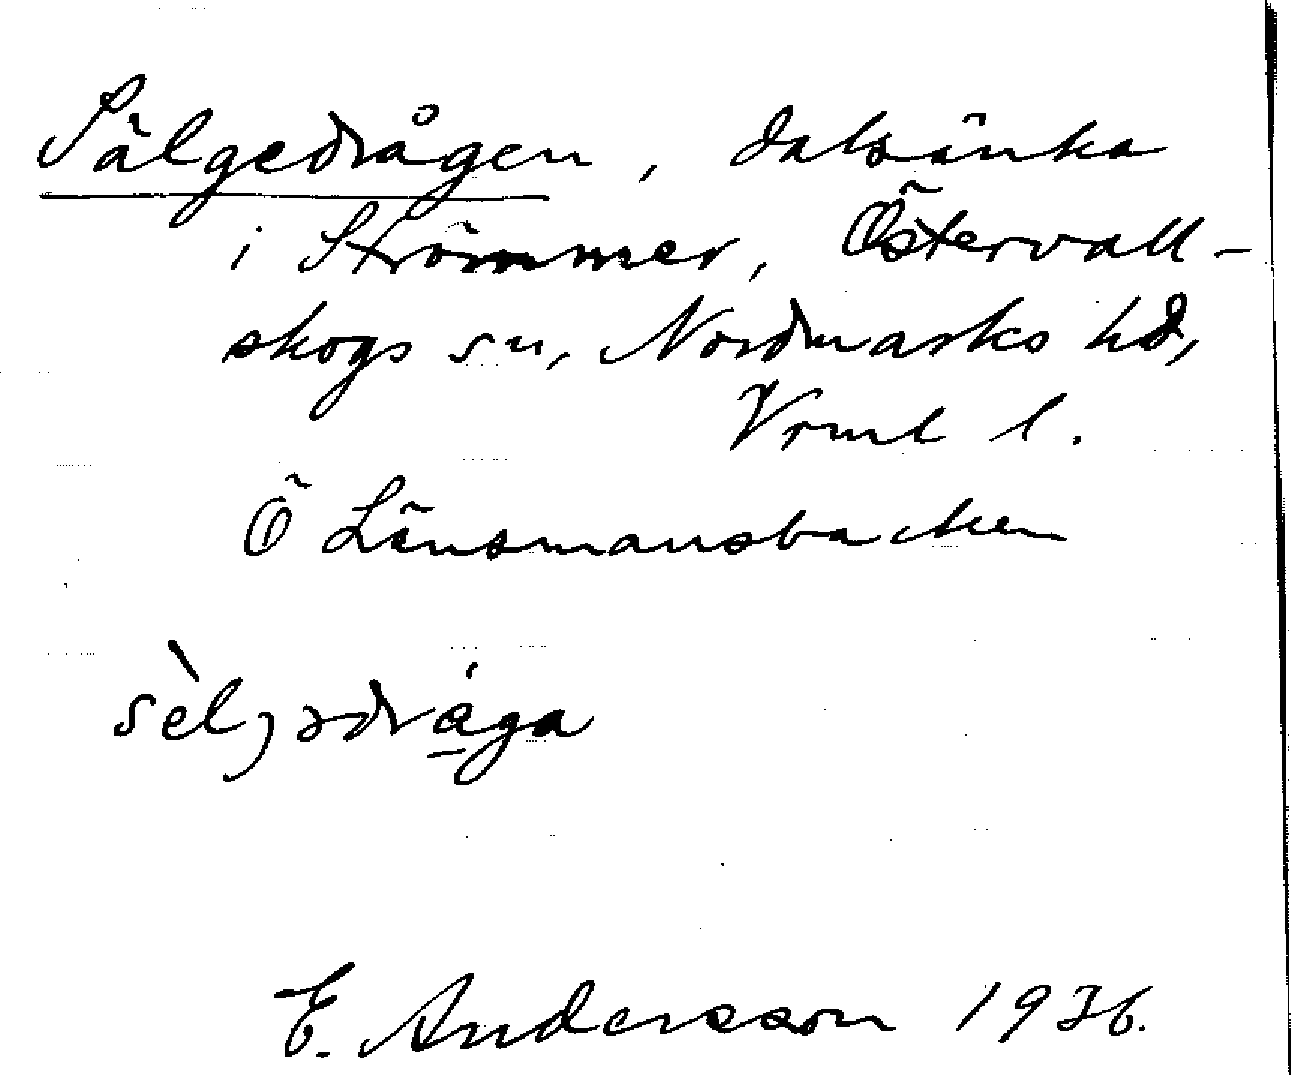 Sälgedrågen, dalsänka
i Strömmer, Östervall-
skogs sn, Nordmarks hd,
Vrml l.
Ö Länsmansbacken
sèljədrága
E. Andersson 1936.